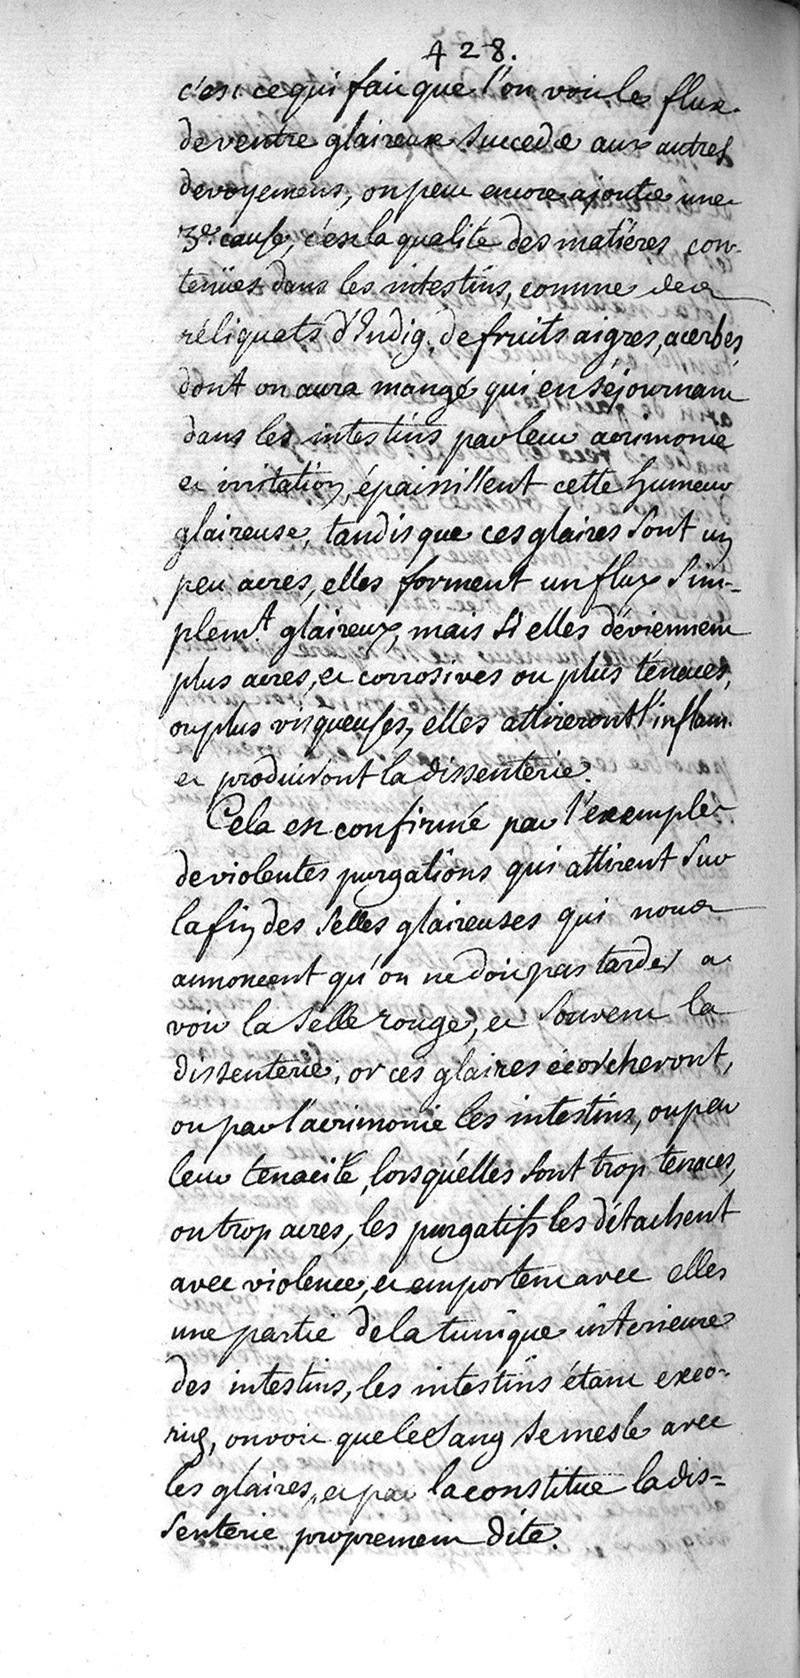 428.
c'est ce qui fait que l'on voit les flux
de ventre glaireux succeder aux autres
devoyemens, on peut encore ajouter une
3e. cause, c'est la qualité des matières con-
tenües dans les intestins, comme des
réliquats d'Indig. de fruits aigres, acerbes,
dont on aura mangé qui en séjournant
dans les intestins par leur acrimonie
et irritation, épaississent cette humeur
glaireuse, tandis que ces glaires sont un
peu acres, elles forment un flux sim-
plemt. glaireux, mais si elles déviennent
plus acres, et corrosives ou plus ténaces,
ou plus visqueuses, elles attireront l'inflam.
et produiront la dissenterie.
Cela est confirmé par l'exemple
de violentes purgations qui attirent sur
la fin des selles glaireuses qui nous
annoncent qu'on ne doit pas tarder a
voir la selle rouge, et souvent la
dissenterie, or ces glaires écorcheront,
ou par l'acrimonie les intestins, ou par
leur tenacité, lorsqu'elles sont trop tenaces,
ou trop acres, les purgatifs les détachent
avec violence, et emportent avec elles
une partie de la tunique intérieure
des intestins, les intestins étant exco-
riés, on voit que le sang se mesle avec
les glaires, et par la constitue la dis-
senterie proprement dite.